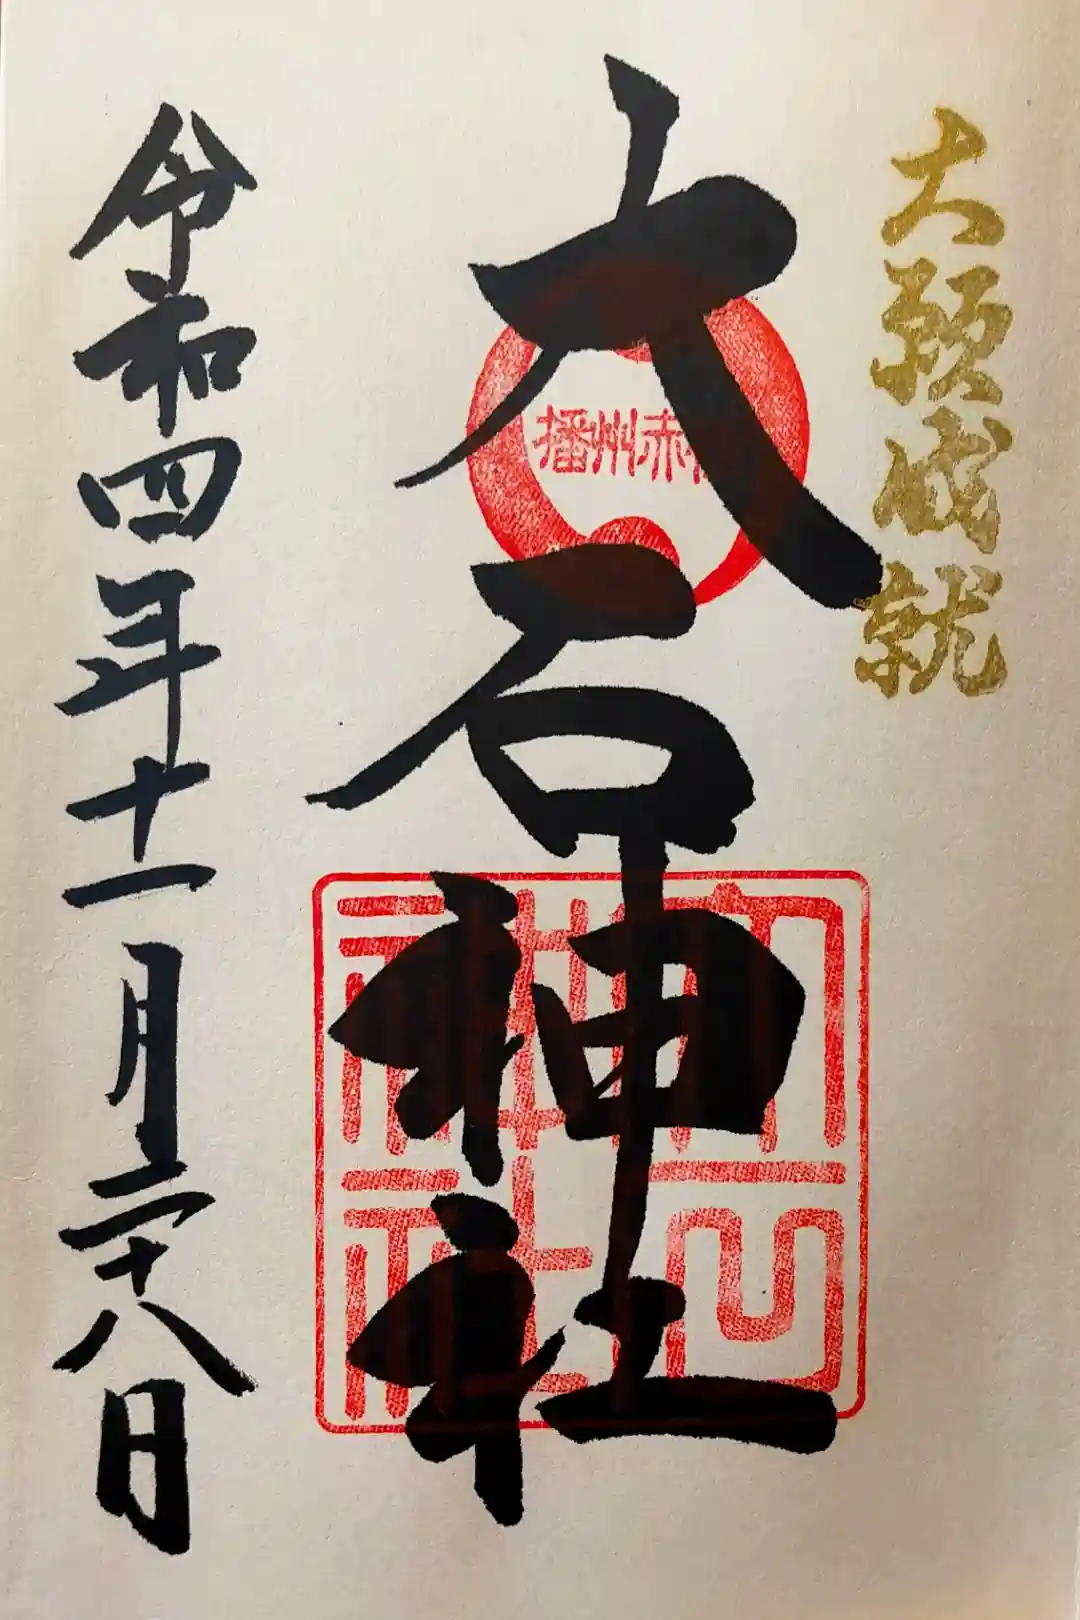 大願成就
大石神社
播州赤穂
大石神社
令和四年十一月二十八日